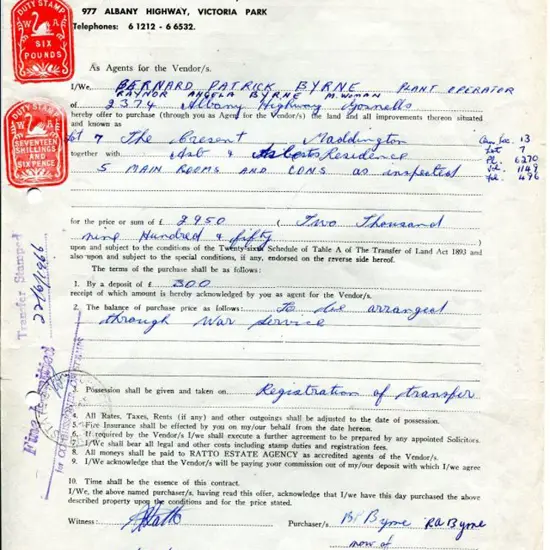 977 ALBANY HIGHWAY, VICTORIA PARK
Telephones: 6 1212 - 6 6532.
DUTY STAMP
W A
SIX
POUNDS
As Agents for the Vendor/s.
I/We, BERNARD PATRICK BYRNE PLANT OPERATOR
RAYNOR ANGELA BYRNE M. WOMAN
of 2374 Albany Highway Gosnells
hereby offer to purchase (through you as Agent for the Vendor/s) the land and all improvements thereon situated
and known as
Lot 7 The Crescent Maddington
Can. Loc. 13
Lot 7
Pl. 6270
Vol. 1149
Fol. 496
DUTY STAMP
W A
SEVENTEEN
SHILLINGS
AND
SIXPENCE
together with Asb & Asbestos Residence
5 MAIN ROOMS AND CONS as inspected
for the price or sum of £ 2950 ( Two Thousand
nine Hundred & fifty )
upon and subject to the conditions of the Twenty-sixth Schedule of Table A of The Transfer of Land Act 1893 and
also upon and subject to the special conditions, if any, endorsed on the reverse side hereof.
The terms of the purchase shall be as follows:
1. By a deposit of £ 300
receipt of which amount is hereby acknowledged by you as agent for the Vendor/s.
2. The balance of purchase price as follows: To be arranged
through War Service
Transfer Stamped
22/6/1966
3. Possession shall be given and taken on Registration of transfer
4. All Rates, Taxes, Rents (if any) and other outgoings shall be adjusted to the date of possession.
5. Fire Insurance shall be effected by you on my/our behalf from the date hereof.
6. If required by the Vendor/s I/We shall execute a further agreement to be prepared by any appointed Solicitors.
7. I/We shall bear all legal and other costs including stamp duties and registration fees.
8. All moneys shall be paid to RATTO ESTATE AGENCY as accredited agents of the Vendor/s.
9. I/We acknowledge that the Vendor/s will be paying your commission out of my/our deposit with which I/we agree
Fine Remitted
for COMMISSIONER
10. Time shall be the essence of this contract.
I/We, the above named purchaser/s, having read this offer, acknowledge that I/we have this day purchased the above
described property upon the conditions and for the price stated.
Witness: Ratto Purchaser/s BP Byrne RA Byrne
now of